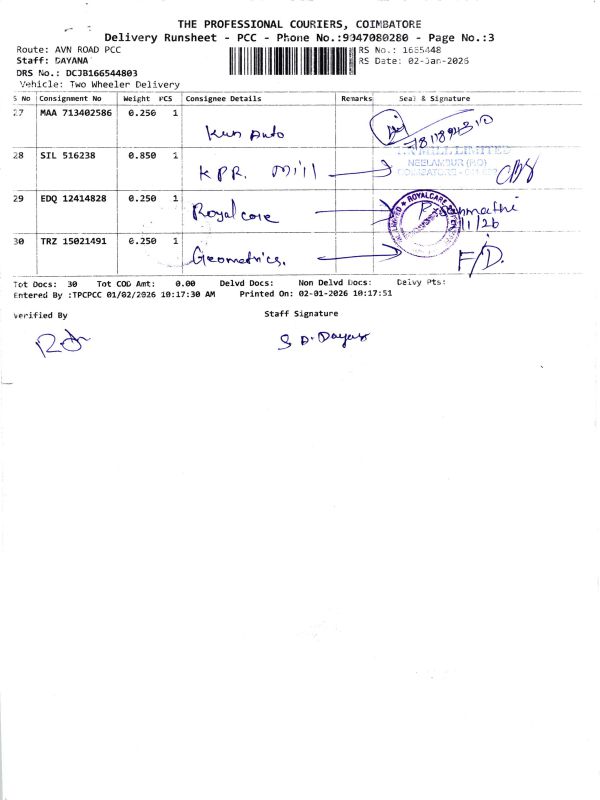 THE PROFESSIONAL COURIERS, COIMBATORE
Delivery Runsheet - PCC - Phone No.:9047080280 - Page No.:3
Route: AVN ROAD PCC
RS No.: 1665448
Staff: DAYANA
RS Date: 02-Jan-2026
DRS No.: DCJB166544803
Vehicle: Two Wheeler Delivery
S No Consignment No Weight PCS Consignee Details Remarks Seal & Signature
27 MAA 713402586 0.250 1 Kun Auto
28 SIL 516238 0.850 1 KPR. Mill MILL LIMITED
NEELAMBUR (PO)
29 EDQ 12414828 0.250 1 Royal care ROYALCARE
1/26
30 TRZ 15021491 0.250 1 Geometrics. F/D.
Tot Docs: 30 Tot COD Amt: 0.00 Delvd Docs: Non Delvd Docs: Delvy Pts:
Entered By :TPCPCC 01/02/2026 10:17:30 AM Printed On: 02-01-2026 10:17:51
Verified By Staff Signature
S D. Dayana